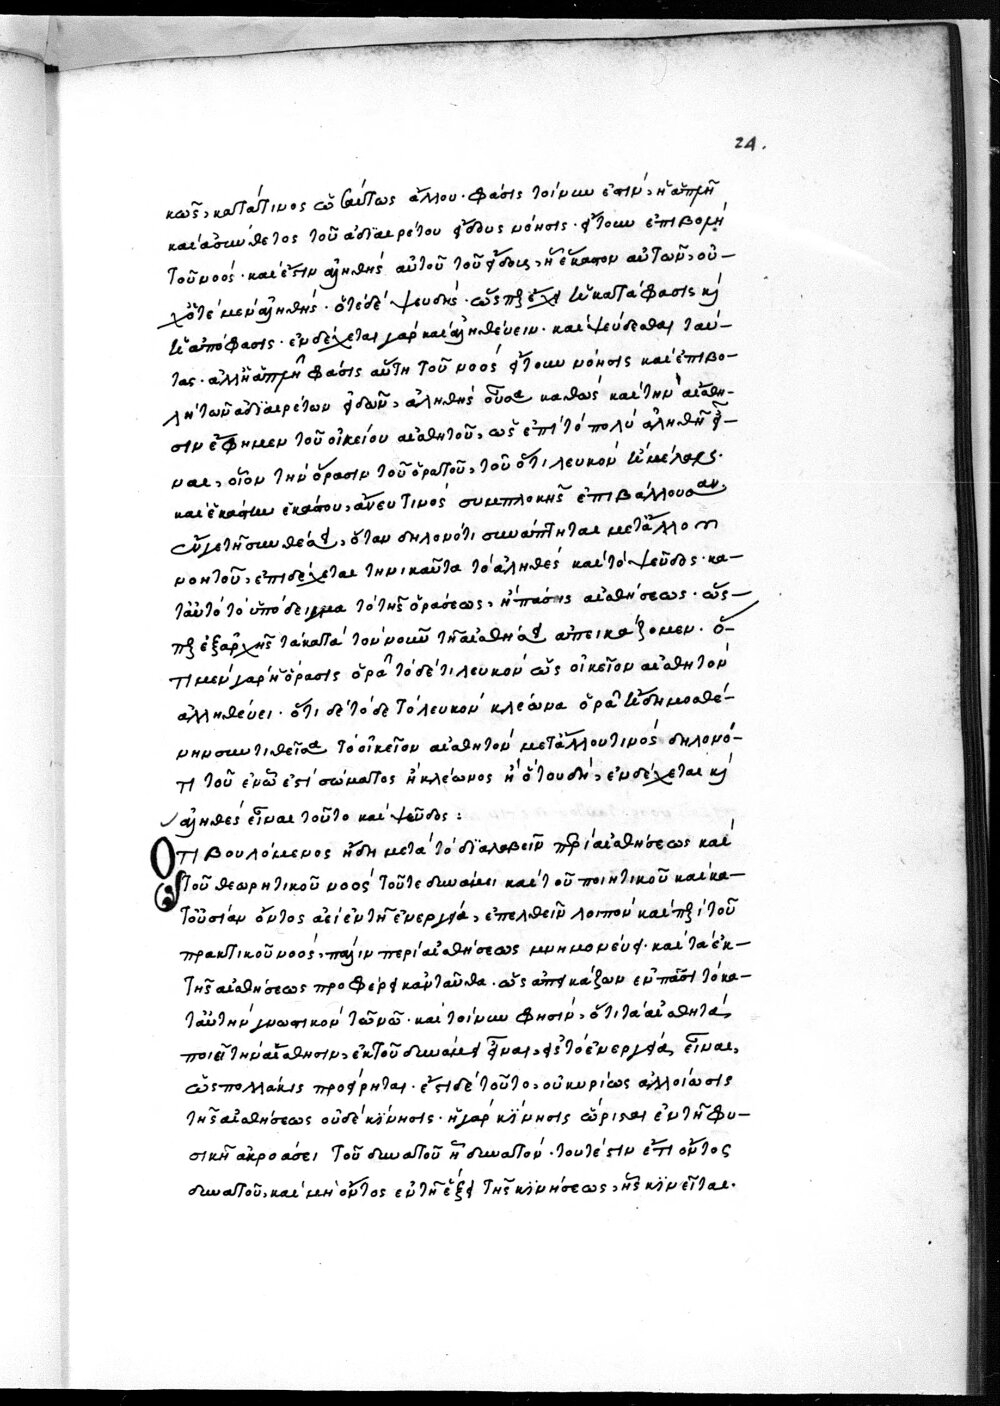 24.
κῶς, κατά τινος ὡσαύτως ἄλλου. φάσις τοίνυν ἐστὶν, ἡ ἁπλῆ
καὶ ἀσύνθετος τοῦ ἀδιαιρέτου εἴδους νόησις. εἴτουν ἐπιβολὴ
τοῦ νοός. καὶ ἔστιν ἀληθὴς αὐτοῦ τοῦ εἴδους, ἢ ἕκαστον αὐτῶν, οὐ-
χ ὁτὲ μὲν ἀληθής. ὁτὲ δὲ ψευδής. ὥσπερ ἔχει ἡ κατάφασις καὶ
ἡ ἀπόφασις. ἐνδέχεται γὰρ καὶ ἀληθεύειν. καὶ ψεύδεσθαι ταύ-
τας. ἀλλ' ἡ ἁπλῆ φάσις αὕτη τοῦ νοὸς εἴτουν νόησις καὶ ἐπιβο-
λὴ τῶν ἀδιαιρέτων εἰδῶν, ἀληθὴς οὖσα καθὼς καὶ τὴν αἴσθη-
σιν ἔφημεν τοῦ οἰκείου αἰσθητοῦ, ὡς ἐπὶ τὸ πολὺ ἀληθῆ εἶ-
ναι, οἷον τὴν ὅρασιν τοῦ ὁρατοῦ, τοῦ ὅτι λευκὸν ἢ μέλαν.
καὶ ἑκάστην ἑκάστου, ἄνευ τινὸς συμπλοκῆς ἐπιβάλλουσαν,
εἴγε τῇ συνθέσει, ὅταν δηλονότι συνάπτηται μετ' ἄλλου
νοητοῦ, ἐπιδέχεται τηνικαῦτα τὸ ἀληθὲς καὶ τὸ ψεῦδος. κα-
τ' αὐτὸ τὸ ὑπόδειγμα τὸ τῆς ὁράσεως, ἢ πάσης αἰσθήσεως. ὥς-
περ ἐξαρχῆς τὰ κατὰ τὸν νοῦν τῇ αἰσθήσει ἀπεικάζομεν. ὅ-
τι μὲν γὰρ ἡ ὅρασις ὁρᾷ τὸ δέ τι λευκὸν ὡς οἰκεῖον αἰσθητὸν
ἀληθεύει. ὅτι δὲ τόδε τὸ λευκὸν κλέωνα ὁρᾷ ἢ δημοσθέ-
νην συντιθεῖσα τὸ οἰκεῖον αἰσθητὸν μετ' ἄλλου τινὸς δηλονό-
τι τοῦ ἐν ᾧ ἐστὶ σώματος ἢ κλέωνος ἢ ὅτου δὴ, ἐνδέχεται καὶ
ἀληθὲς εἶναι τοῦτο καὶ ψεῦδος:
Ὅτι βουλόμενος ἤδη μετὰ τὸ διαλαβεῖν περὶ αἰσθήσεως καὶ
τοῦ θεωρητικοῦ νοὸς τοῦ τε δυνάμει καὶ τοῦ ποιητικοῦ καὶ κα-
τ' οὐσίαν ὄντος ἀεὶ ἐν τῇ ἐνεργείᾳ, ἐπελθεῖν λοιπὸν καὶ περὶ τοῦ
πρακτικοῦ νοὸς, πάλιν περὶ αἰσθήσεως μνημονεύει. καὶ τὰ ἐκ
τῆς αἰσθήσεως προφέρει κἀνταῦθα. ὡς ἀπεικάζων ἐν πᾶσι τὸ κα-
τ' αὐτὴν γνωστικὸν τῷ νῷ. καὶ τοίνυν φησὶν, ὅτι τὰ αἰσθητὰ
ποιεῖ τὴν αἴσθησιν, ἐκ τοῦ δυνάμει εἶναι, εἰς τὸ ἐνεργείᾳ εἶναι,
ὡς πολλάκις προείρηται. ἔστι δὲ τοῦτο, οὐ κυρίως ἀλλοίωσις
τῆς αἰσθήσεως οὐδὲ κίνησις. ἡ γὰρ κίνησις ὥρισται ἐν τῇ φυ-
σικῇ ἀκροάσει τοῦ δυνατοῦ ᾗ δυνατόν. τουτέστιν ἔτι ὄντος
δυνατοῦ, καὶ μὴ ὄντος ἐν τῇ ἕξει τῆς κινήσεως, ἧς κινεῖται.